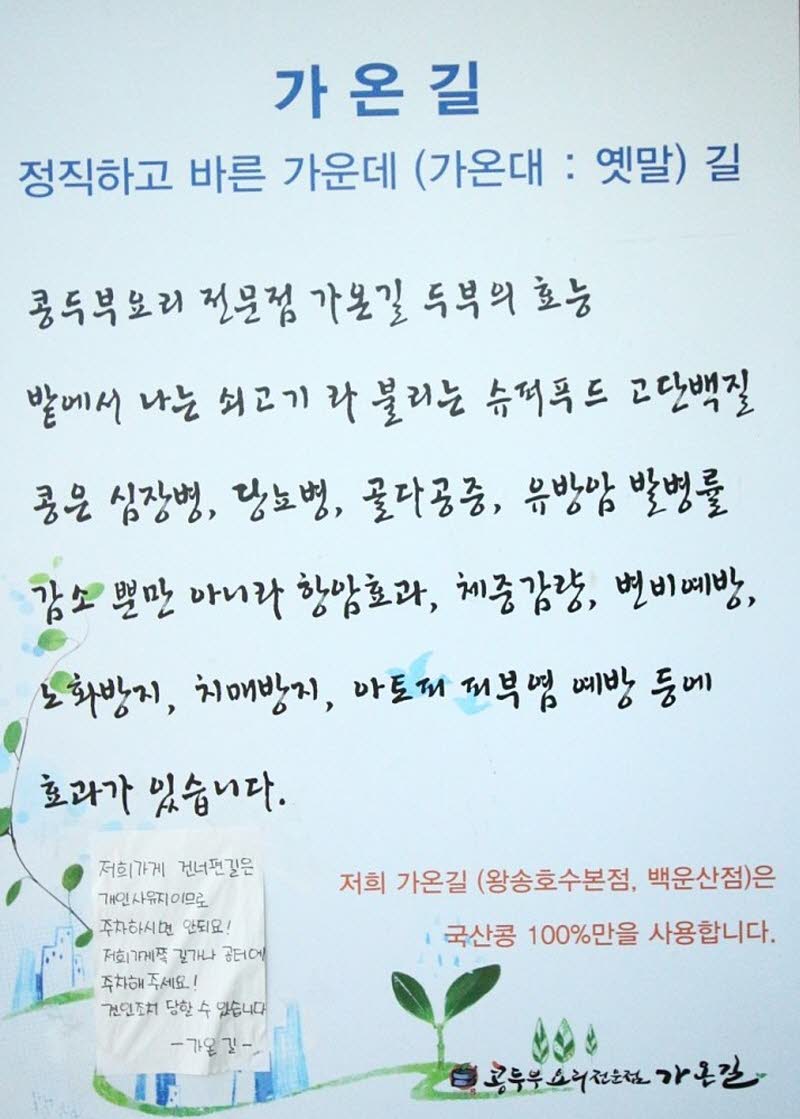 가온길
정직하고 바른 가운데 (가온대 : 옛말) 길
콩두부요리 전문점 가온길 두부의 효능
밭에서 나는 쇠고기 라 불리는 슈퍼푸드 고단백질
콩은 심장병, 당뇨병, 골다공증, 유방암 발병률
감소 뿐만 아니라 항암효과, 체중감량, 변비예방,
노화방지, 치매방지, 아토피 피부염 예방 등에
효과가 있습니다.
저희가게 건너편길은
개인사유지이므로
주차하시면 안되요!
저희가게쪽 길가나 공터에
주차해주세요!
견인조치 당할 수 있습니다
-가온길-
저희 가온길 (왕송호수본점, 백운산점)은
국산콩 100%만을 사용합니다.
콩두부요리전문점 가온길